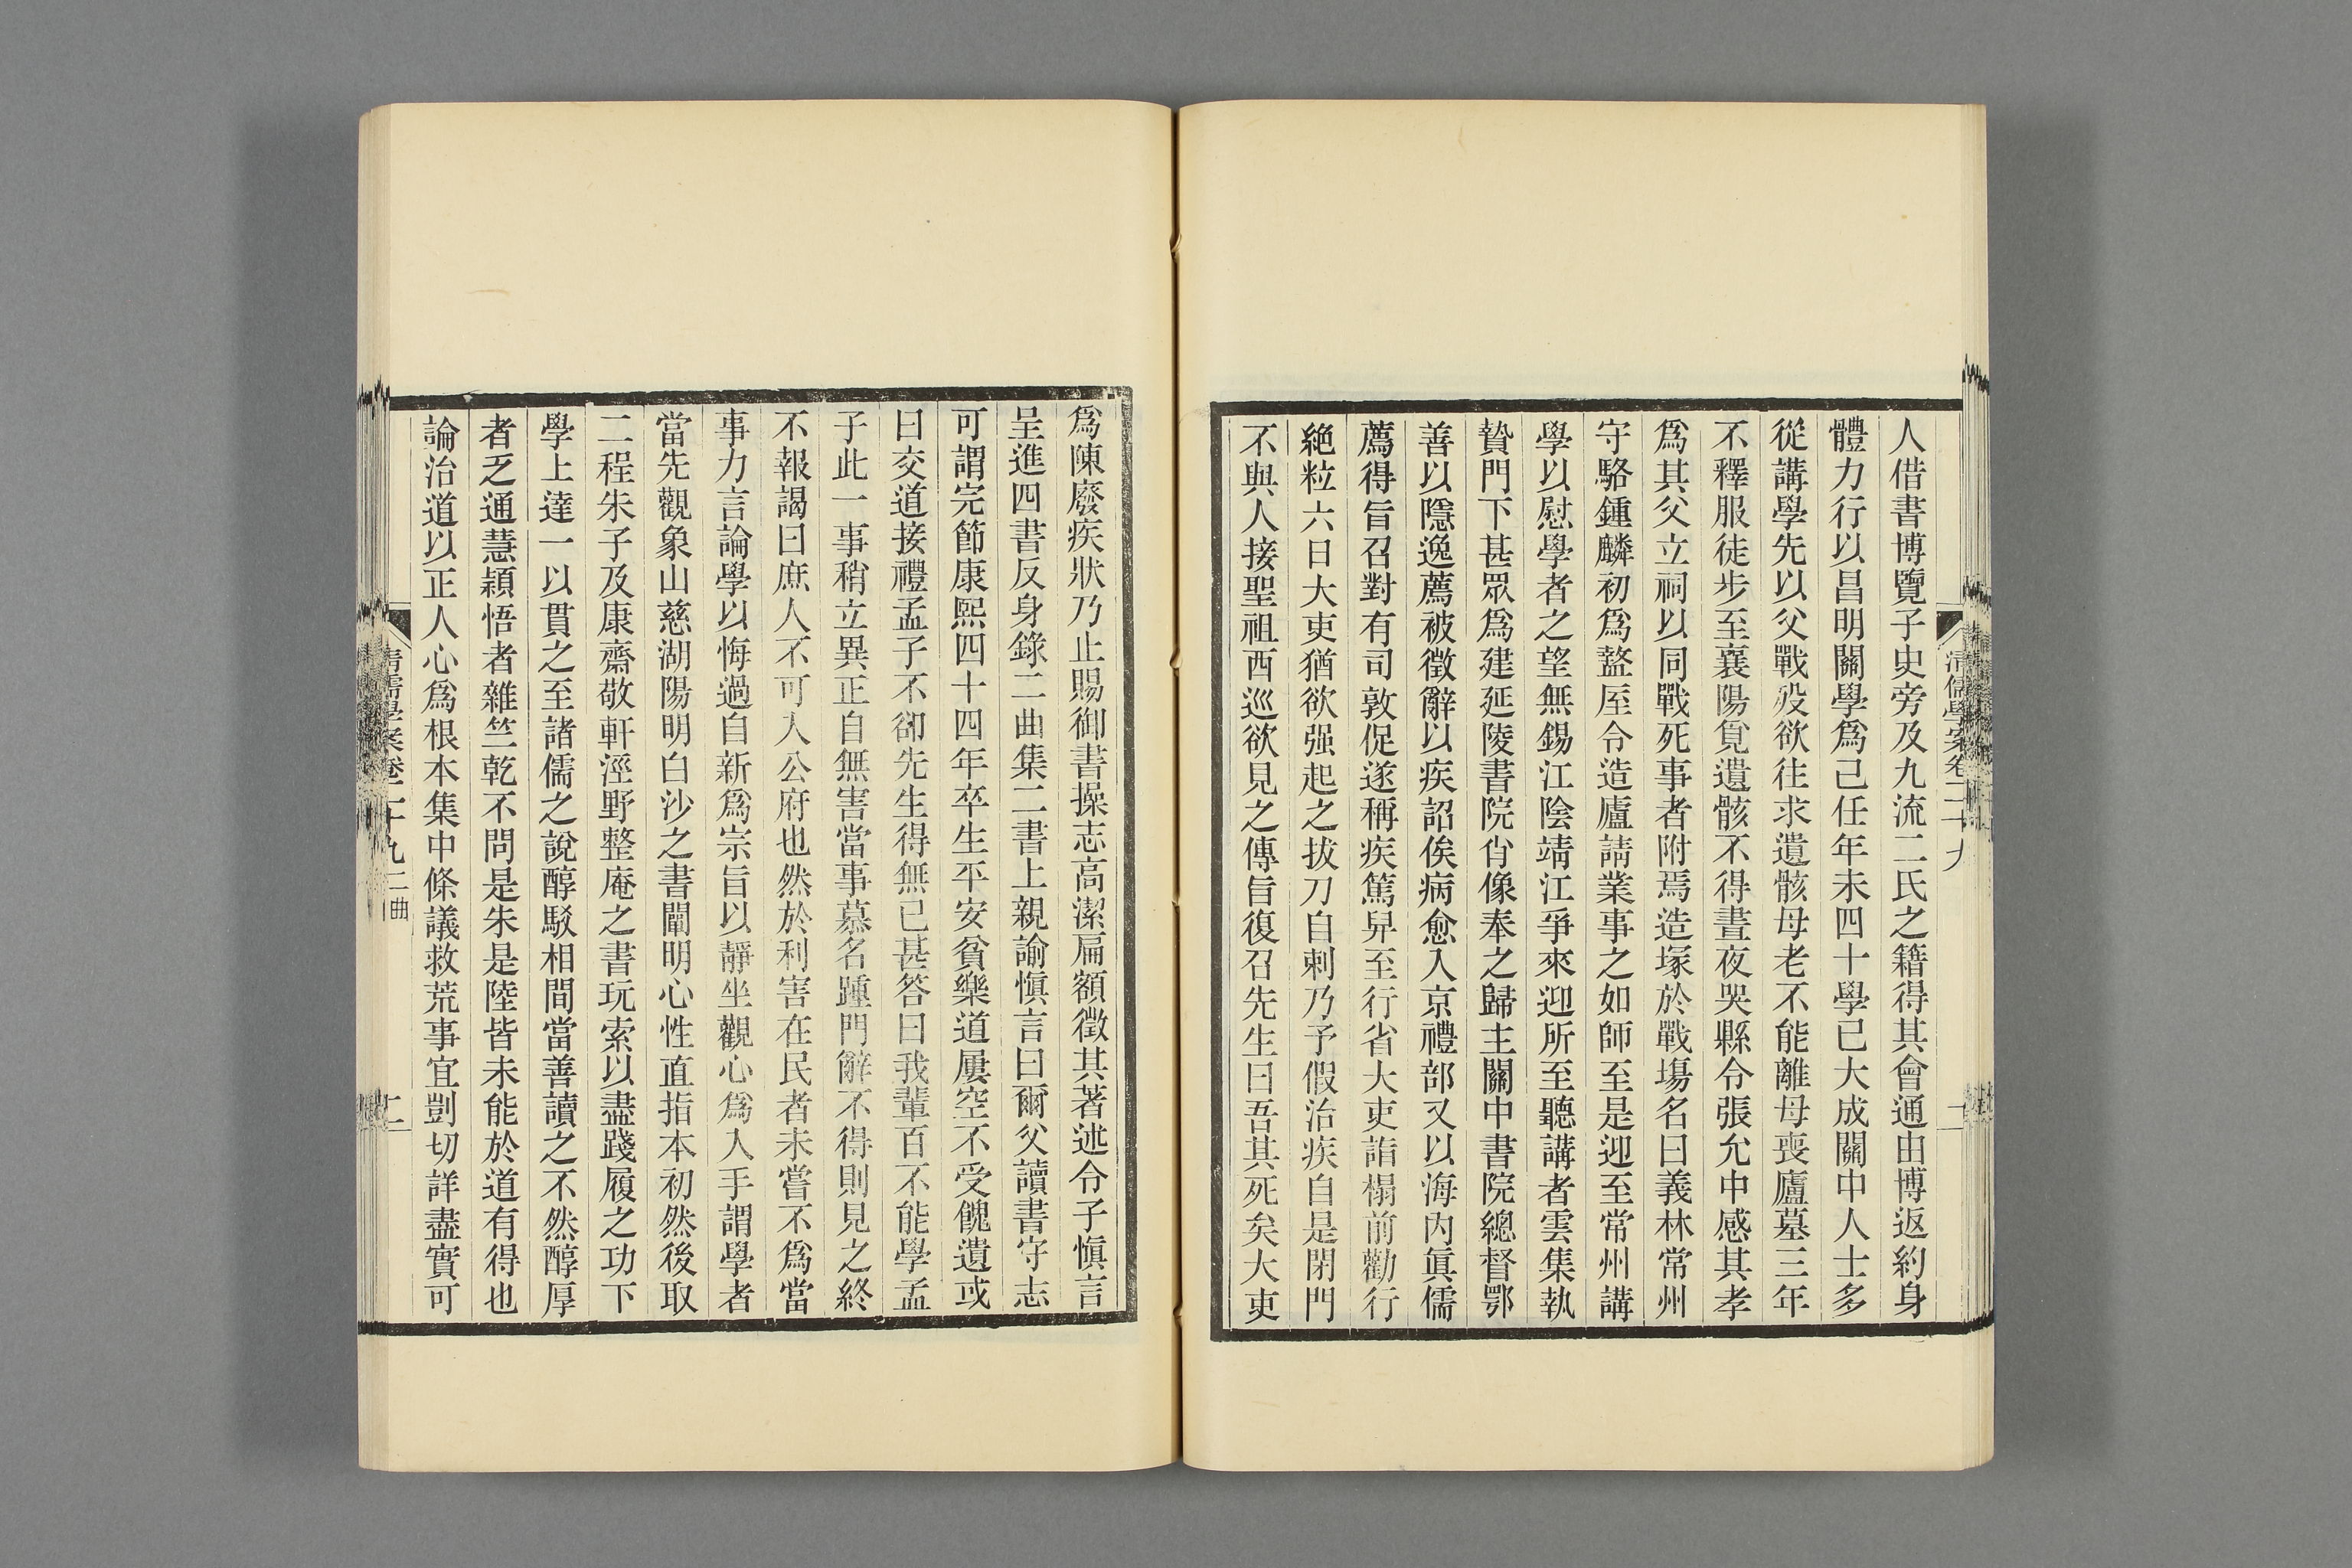 人借書博覽子史旁及九流二氏之籍得其會通由博返約身
體力行以昌明關學爲己任年未四十學已大成關中人士多
從講學先以父戰歿欲往求遺骸母老不能離母喪廬墓三年
不釋服徒步至襄陽覓遺骸不得晝夜哭縣令張允中感其孝
爲其父立祠以同戰死事者附焉造塚於戰場名曰義林常州
守駱鍾麟初爲盩厔令造廬請業事之如師至是迎至常州講
學以慰學者之望無錫江陰靖江爭來迎所至聽講者雲集執
贄門下甚眾爲建延陵書院肖像奉之歸主關中書院總督鄂
善以隱逸薦被徵辭以疾詔俟病愈入京禮部又以海內眞儒
薦得旨召對有司敦促遂稱疾篤舁至行省大吏詣榻前勸行
絕粒六日大吏猶欲强起之拔刀自刺乃予假治疾自是閉門
不與人接聖祖西巡欲見之傳旨復召先生曰吾其死矣大吏
爲陳廢疾狀乃止賜御書操志高潔扁額徵其著述令子愼言
呈進四書反身錄二曲集二書上親諭愼言曰爾父讀書守志
可謂完節康熙四十四年卒生平安貧樂道屢空不受餽遺或
曰交道接禮孟子不卻先生得無已甚答曰我輩百不能學孟
子此一事稍立異正自無害當事慕名踵門辭不得則見之終
不報謁曰庶人不可入公府也然於利害在民者未嘗不爲當
事力言論學以悔過自新爲宗旨以靜坐觀心爲入手謂學者
當先觀象山慈湖陽明白沙之書闡明心性直指本初然後取
二程朱子及康齋敬軒涇野整庵之書玩索以盡踐履之功下
學上達一以貫之至諸儒之說醇駁相間當善讀之不然醇厚
者乏通慧穎悟者雜竺乾不問是朱是陸皆未能於道有得也
論治道以正人心爲根本集中條議救荒事宜剴切詳盡實可
清儒學案卷二十九 二曲 二